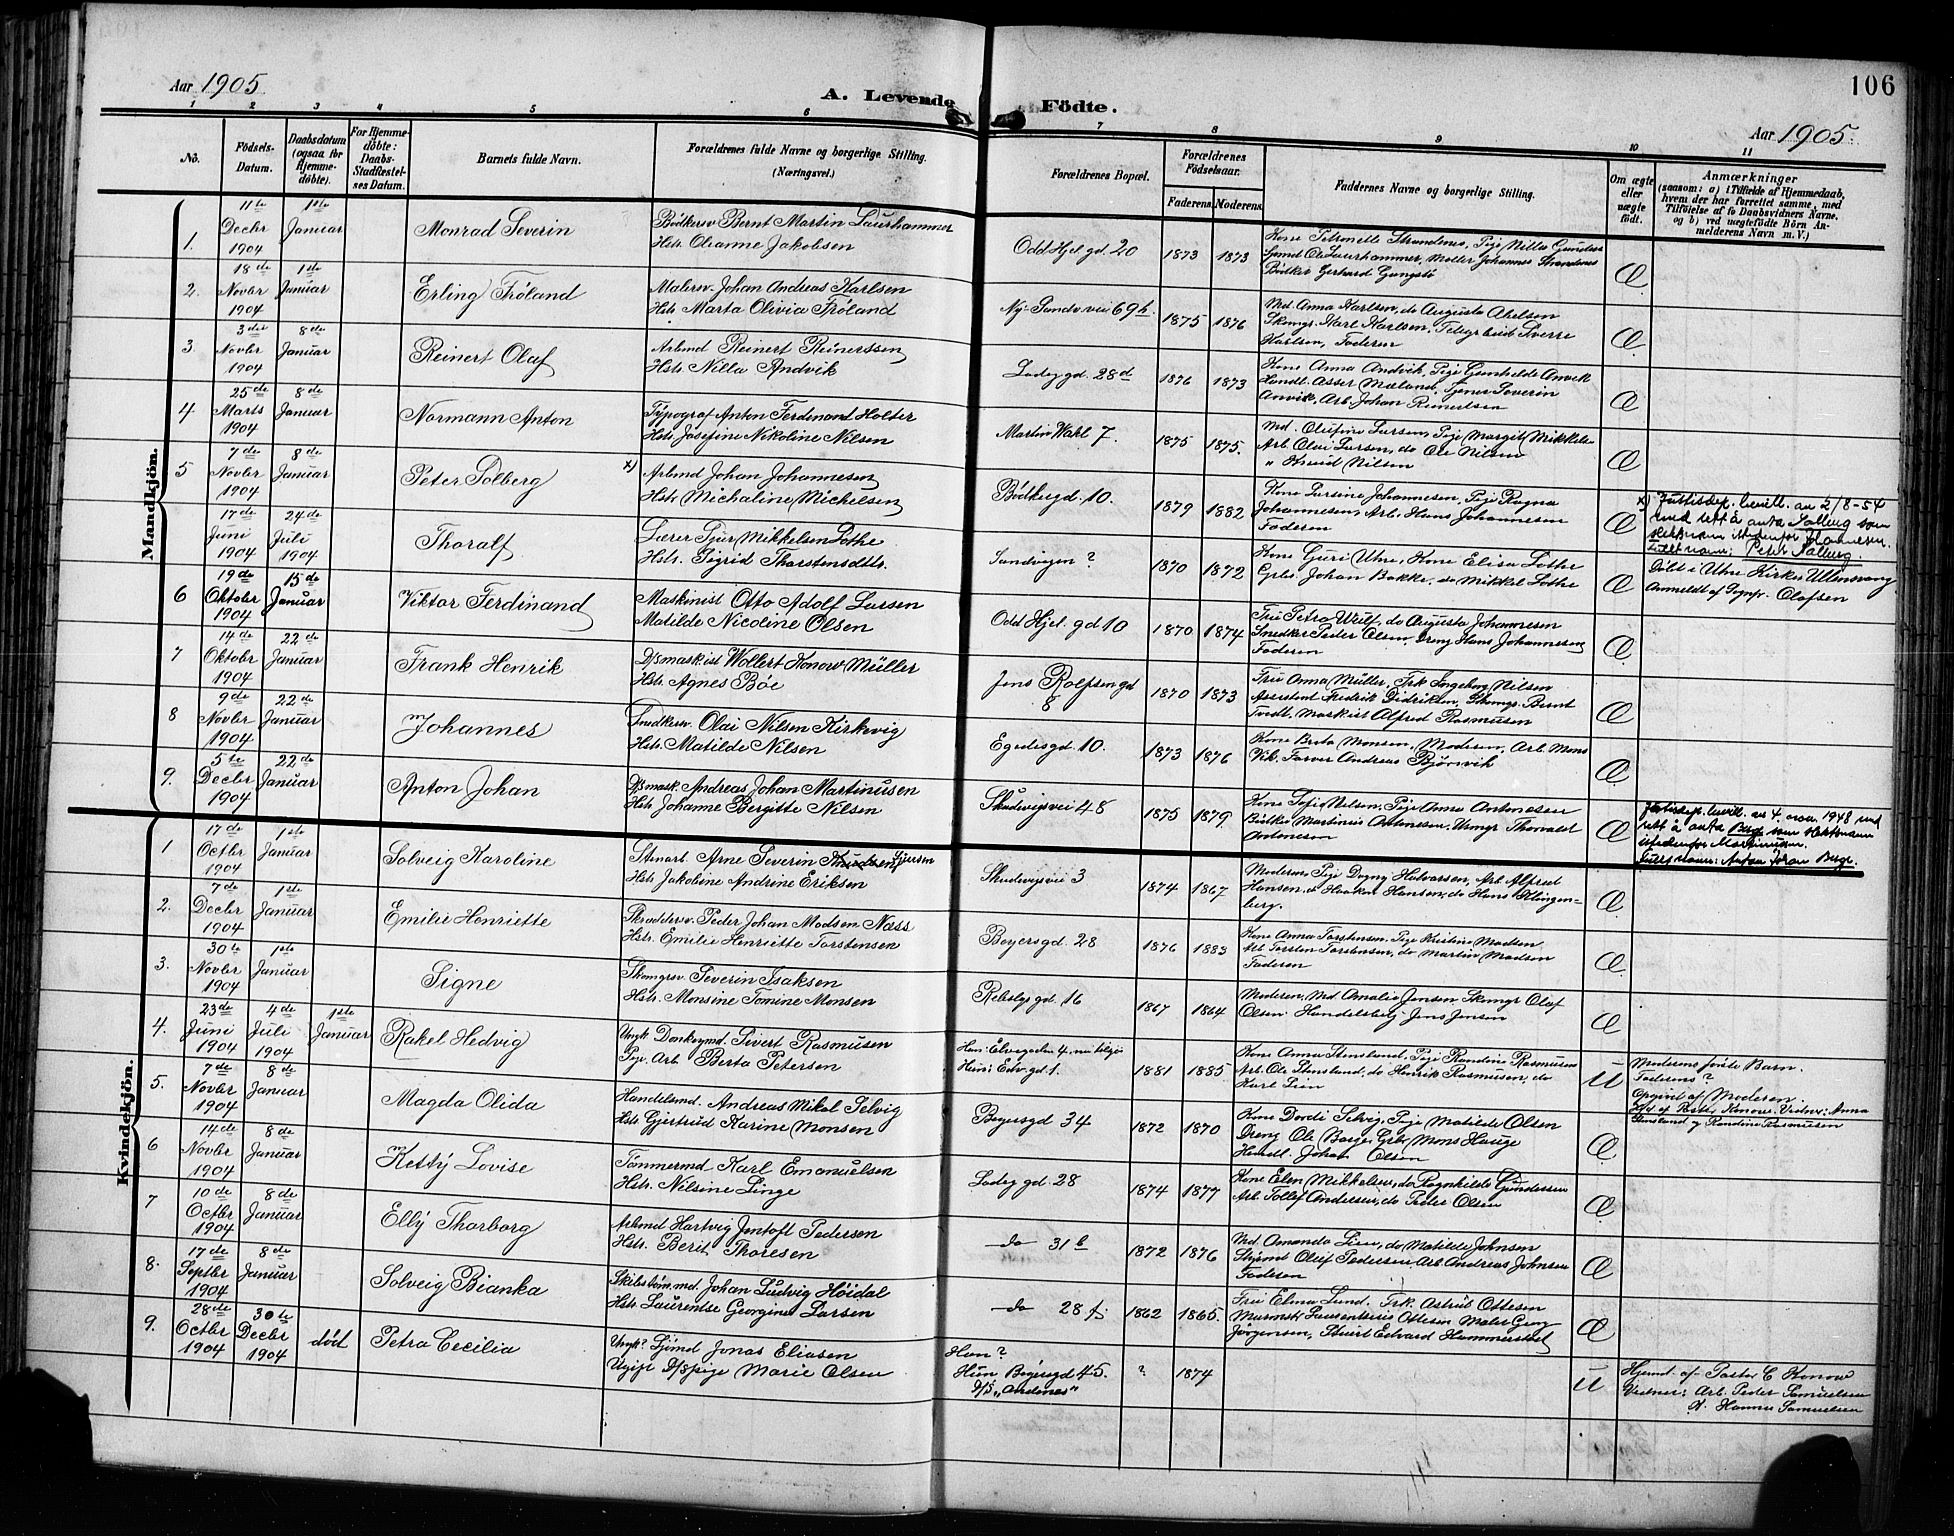 106
Aar 1905
A. Levende Födte.
Aar 1905.
1 2 3 4 5 6 7 8 9 10 11
No.
Födsels-Datum.
Daabsdatum (ogsaa for Hjemmedöbte).
For Hjemmedöbte: Daabs-Stadfæstelses Datum.
Barnets fulde Navn.
Forældrenes fulde Navne og borgerlige Stilling. (Næringsvei.)
Forældrenes Bopæl.
Forældrenes Födselsaar.
Faderens. Moderens.
Faddernes Navne og borgerlige Stilling.
Om ægte eller uægte födt.
Anmærkninger
(saasom: a) i Tilfælde af Hjemmedaab, hvem der har forrettet samme, med Tilföielse af to Daabsvidners Navne, og b) ved uægtefödte Börn Anmelderens Navn m. V.)
Mandkjön.
1. 11te Decbr 1904 1ste Januar
Monrad Severin
Bödkersv Bernt Martin Laurhammer
Hstr. Oleanne Jakobsen
Odd Hjel. gd. 20 1873 1873
Kone Petronelle Strandenes, Pige Nilla
Ole Laurhammer, Möller Johannes Strandenes
Bödker Gerhard
Æ
2. 18de Novbr 1904 1ste Januar
Erling Fröland
Malersv. Johan Andreas Karlsen
Hstr Marta Olivia Fröland
Ny-Sandv. vei 69 b. 1875 1876
Md. Anna Karlsen, do Augusta Abelsen
Skomgr. Karl Karlsen, Telegr.bud Sverre
Karlsen, Faderen
Æ
3. 3die Novbr 1904 8de Januar
Reinert Olaf
Arbmd Reinert Reinertssen
Hstr. Nilla Andvik
Ladeg gd. 28 d 1876 1873
Kone Anna Andvik, Pige Gunhilde Anvik
Handl. Asser Mæland, Tjener Severin
Anvik, Arb. Johan Reinertsen
Æ
4 25de Marts 1904 8de Januar
Normann Anton
Typograf Anton Ferdinand Holter
Hstr Josefine Nikoline Nilsen
Martin Wahl 7. 1875 1875.
Md. Olufine Larsen, Pige Margit
Arb Olai Larsen, do Ole Nilsen
" Knud Nilsen
Æ
5 7de Novbr 1904 8de Januar
Peter Solberg
x) Arbmd Johan Johannesen
Hstr Michaline Mickelsen
Bödkergd 10. 1879 1882
Kone Larsine Johannesen, Pige Ragna
Johannesen, Arb. Hans Johannesen
Faderen
Æ
x) Justisdep. bevill. av 2/8-54
med rett å anta Solberg som
slektsnavn istedenfor Johannesen.
Fullt navn: Peter Solberg.
17de Juni 1904 24de Juli 1904
Thoralf
Lærer Sjur Mikkelsen Lothe
Hstr. Sigrid Thorstensdtt.
Sandvigen ? 1870 1872
Kone Guri Utne, Kone Elisa Lothe
Johan Bakke, do Mikkel Lothe
Æ
Döbt i Utne Kirke Ullensvang
Anmeldt af Sognpr. Olafsen
6 19de Oktobr 1904 15de Januar
Viktor Ferdinand
Maskinist Otto Adolf Larsen
Matilde Nicoline Olsen
Odd Hjel. gd 10 1870 1874
Fru Petra Wulf, do Augusta Johannesen
Snedker Peder Olsen, Dreng Hans Johannesen
Faderen
Æ
7 14de Oktobr 1904 22de Januar
Frank Henrik
D/smaskist Wollert Konow Müller
Hstr. Agnes Böe
Jens Rolfsen gd 8 1870 1873
Fru Anna Müller, Frk Ingeborg Nilsen
Assistent Fredrik Didriksen, Skomgr. Bernt
Tvedt. Maskist Alfred Rasmusen
Æ
8 9de Novbr 1904 22de Januar
Johannes
Snedkersv. Olai Nilsen Kirkvig
Hstr. Matilde Nilsen
Egedesgd. 10. 1873 1876
Kone Berta Monsen, Moderen, Arb Mons
Vik. Farver Andreas Bjørsvik
Æ
9. 5te Decbr 1904 22de Januar
Anton Johan
D/smask. Andreas Johan Martinusen
Hstr. Johanne Bergitte Nilsen
Skudevigsvei 48 1875 1879
Kone Sofie Nilsen, Pige Anna Antonesen
Bödker Martinius Antonesen, Urmgr Thorvald
Antonesen
Æ
Justisdep. bevill. av 4. nov. 1948 med
rett å anta Berge som slektsnavn
istedenfor Martinusen.
Fullt navn: Anton Johan Berge.
Kvindekjön.
1 17de Octbr 1904 1ste Januar
Solveig Karoline
Stenarb. Arne Severin Knudsen
Hstr. Jakobine Andrine Eriksen
Skudevigsvei 3 1874 1867
Moderen, Pige Dagny Halvorsen, Arb Alfred
Hansen, do Haakon Hansen, do Hans Klingen-
berg.
Æ
2. 7de Decbr 1904 1ste Januar
Emilie Henriette
Skræddersv. Peder Johan Madsen Næss
Hstr. Emilie Henriette Torstensen
Beyersgd. 28 1876 1883
Kone Anna Torstensen, Pige Kristine Madsen
Arb Torsten Torstensen, do Martin Madsen
Faderen
Æ
3. 30te Novbr 1904 1ste Januar
Signe
Skomgrsv. Severin Isaksen
Hstr. Monsine Tomine Monsen
Rebslg gd. 16 1867 1864
Moderen, Md. Amalie Jensen, Skomgr Olaf
Olsen. Handelsbetj. Jens Jensen
Æ
4. 23de Juni 1904 4de Juli 1904 1ste Januar
Rakel Hedvig
Ungk Donkeymd. Sivert Rasmusen
Pige, Arb Berta Petersen
Han: Elvegaden 4, nu tilsjös
Hun: Edv. gd 1. 1881 1885
Kone Anna Stensland, Pige Randine Rasmusen
Arb. Ole Stensland, do Henrik Rasmusen, do
Karl Lien
U
Moderens förste Barn.
Faderens ?
Opgivet af Moderen.
Hjd af Pastor Konow. Vidner: Anna
Stensland og Randine Rasmusen
5. 7de Novbr 1904 8de Januar
Magda Olida
Handelsmd. Andreas Mikal Selvig
Hstr. Gjertrud Karine Monsen
Beyersgd 34 1872 1870
Kone Dordi Selvig, Pige Matilde Olsen
Dreng Ole Borge, Mons Hauge
Handl. Johan Olsen
Æ
6 14de Novbr 1904 8de Januar
Ketty Lovise
Tömmermd Karl Emanuelsen
Hstr. Nilsine Linge
Ladeg gd 28 1874 1877
Kone Elen Mikkelsen, do Ragnhilde Gundersen
Arb Tollef Andersen, do Peder Olsen
Æ
7 10de Octbr 1904 8de Januar
Elly Thorborg
Arbmd Hartvig Jentoft Pedersen
Hstr. Berit Thoresen
do 31 b 1872 1876
Md. Amanda Lien, do Matilde Johnsen
Styrmd Oluf Pedersen Arb Andreas Johnsen
Faderen
Æ
8. 17de Septbr 1904 8de Januar
Solveig Bianka
Skibstöm.md. Johan Ludvig Höidal
Hstr. Laurentse Georgine Larsen
do 28 1862 1865.
Fru Elma Lund. Frk. Astrid Ottesen
Laurentius Ottesen Maler Georg
Jörgensen, Stuert Edvard Hammerstad
Æ
9. 28de Octbr 1904 30te Decbr 1904 död
Petra Cecilia
Ungk? Sjömd Jonas Eliasen
Ugift D/spige Marie Olsen
Han ?
Hun Beyersgd 45.
D/S. "Andenes" ? 1874
U
Hjemd. af Pastor C Konow
Vidner: Arb. Peder Samuelsen
Hanna Samuelsen